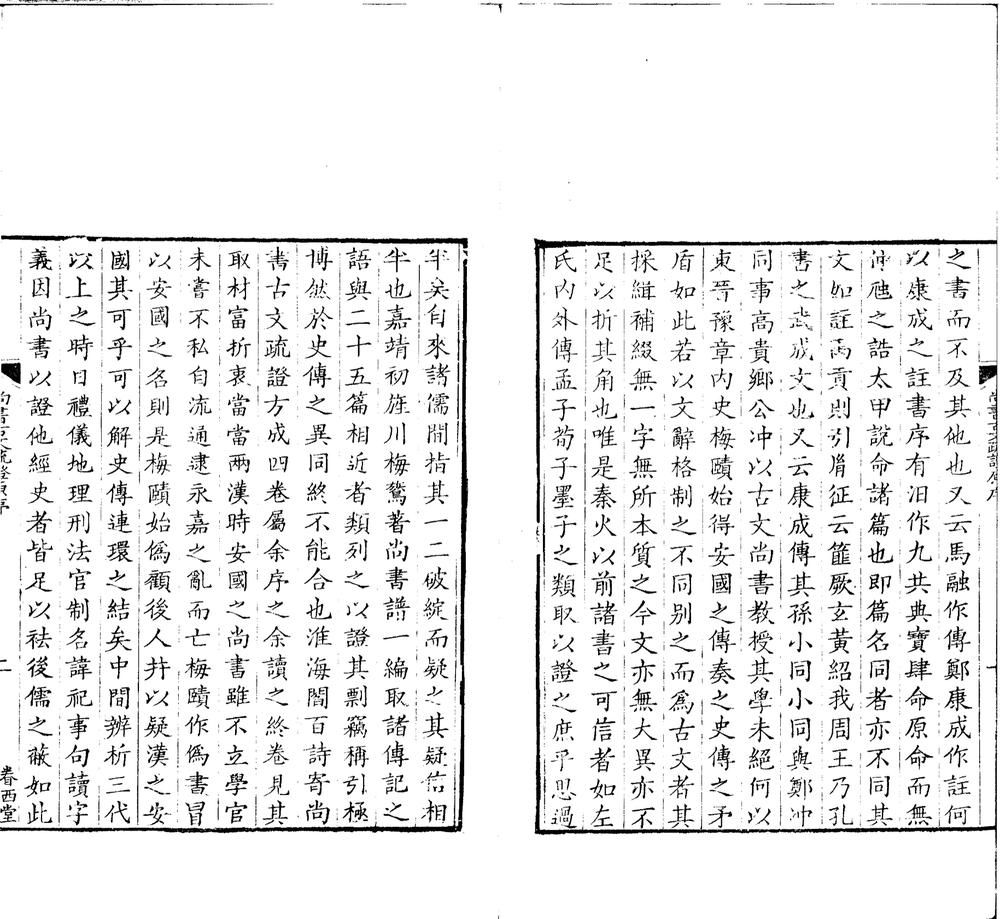 之書而不及其他也又云馬融作傳鄭康成作註何
以康成之註書序有汨作九共典寶肆命原命而無
仲虺之誥太甲說命諸篇也即篇名同者亦不同其
文如註禹貢則引胤征云篚厥玄黃紹我周王乃孔
書之武成文也又云康成傳其孫小同小同與鄭冲
同事高貴鄉公冲以古文尚書教授其學未絕何以
東晉豫章內史梅賾始得安國之傳奏之史傳之矛
盾如此若以文辭格制之不同別之而爲古文者其
採緝補綴無一字無所本質之今文亦無大異亦不
足以折其角也唯是秦火以前諸書之可信者如左
氏內外傳孟子荀子墨子之類取以證之庶乎思過
半矣自來諸儒間指其一二破綻而疑之其疑信相
半也嘉靖初旌川梅鷟著尚書譜一編取諸傳記之
語與二十五篇相近者類列之以證其剽竊稱引極
博然於史傳之異同終不能合也淮海閻百詩寄尚
書古文疏證方成四卷屬余序之余讀之終卷見其
取材富折衷當當兩漢時安國之尚書雖不立學官
未嘗不私自流通逮永嘉之亂而亡梅賾作僞書冒
以安國之名則是梅賾始僞顧後人并以疑漢之安
國其可乎可以解史傳連環之結矣中間辨析三代
以上之時日禮儀地理刑法官制名諱祀事句讀字
義因尚書以證他經史者皆足以祛後儒之蔽如此
尚書古文疏證原序
二
眷西堂